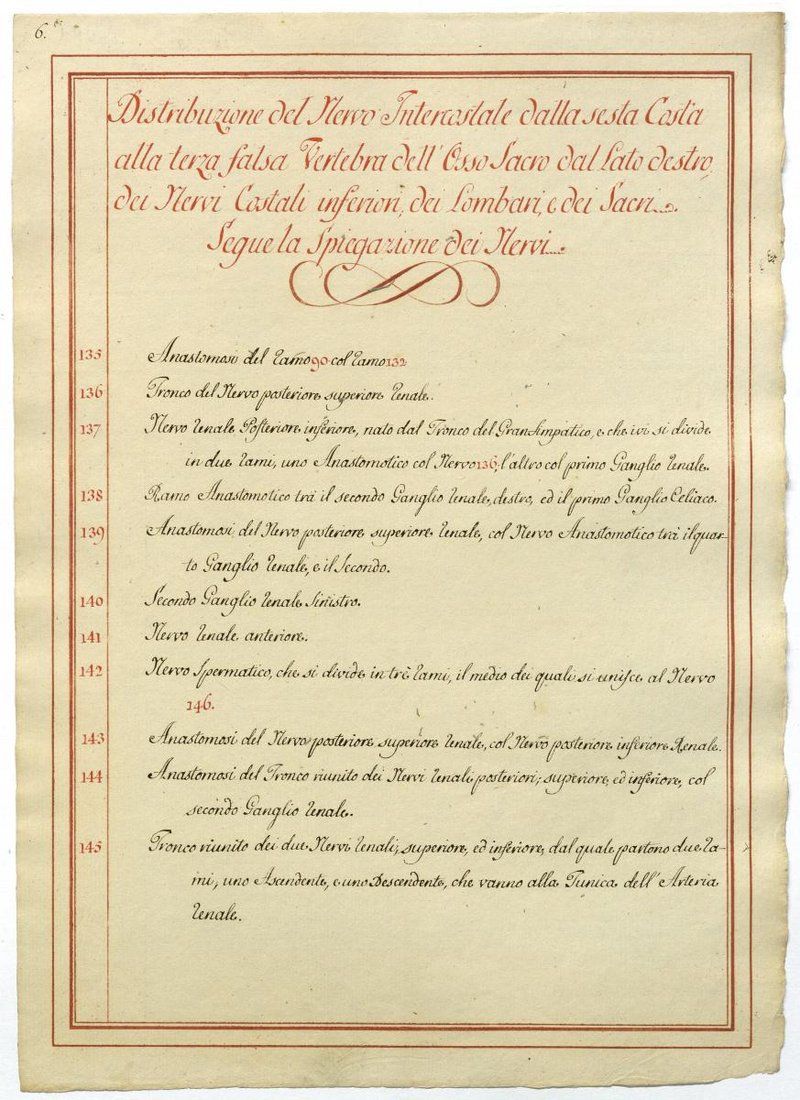 6.
Distribuzione del Nervo Intercostale dalla sesta Costa
alla terza falsa Vertebra dell' Osso Sacro dal Lato destro,
dei Nervi Costali inferiori, dei Lombari, e dei Sacri.
Segue la Spiegazione dei Nervi.
135 Anastomosi del Ramo 90 col Ramo 132
136 Tronco del Nervo posteriore superiore Renale.
137 Nervo Renale Posteriore inferiore, nato dal Tronco del Gran Simpatico, e che ivi si divide
in due Rami, uno Anastomotico col Nervo 136, l'altro col primo Ganglio Renale.
138 Ramo Anastomotico trà il secondo Ganglio Renale, destro, ed il primo Ganglio Celiaco.
139 Anastomosi del Nervo posteriore superiore Renale, col Nervo Anastomotico trà il quar-
to Ganglio Renale, e il Secondo.
140 Secondo Ganglio Renale Sinistro.
141 Nervo Renale anteriore.
142 Nervo Spermatico, che si divide in trè Rami, il medio dei quali si unisce al Nervo
146.
143 Anastomosi del Nervo posteriore superiore Renale, col Nervo posteriore inferiore Renale.
144 Anastomosi del Tronco riunito dei Nervi Renali posteriori; superiore, ed inferiore, col
secondo Ganglio Renale.
145 Tronco riunito dei due Nervi Renali; superiore, ed inferiore, dal quale partono due Ra-
mi; uno Ascendente, e uno Descendente, che vanno alla Tunica dell' Arteria
Renale.